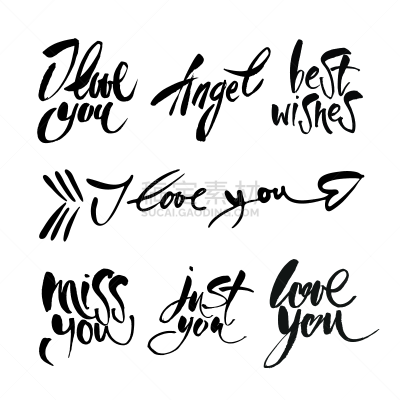 I love you
Angel
best wishes
I love you
稳定素材
SUCAI.GAODING.COM
miss you
just you
love you